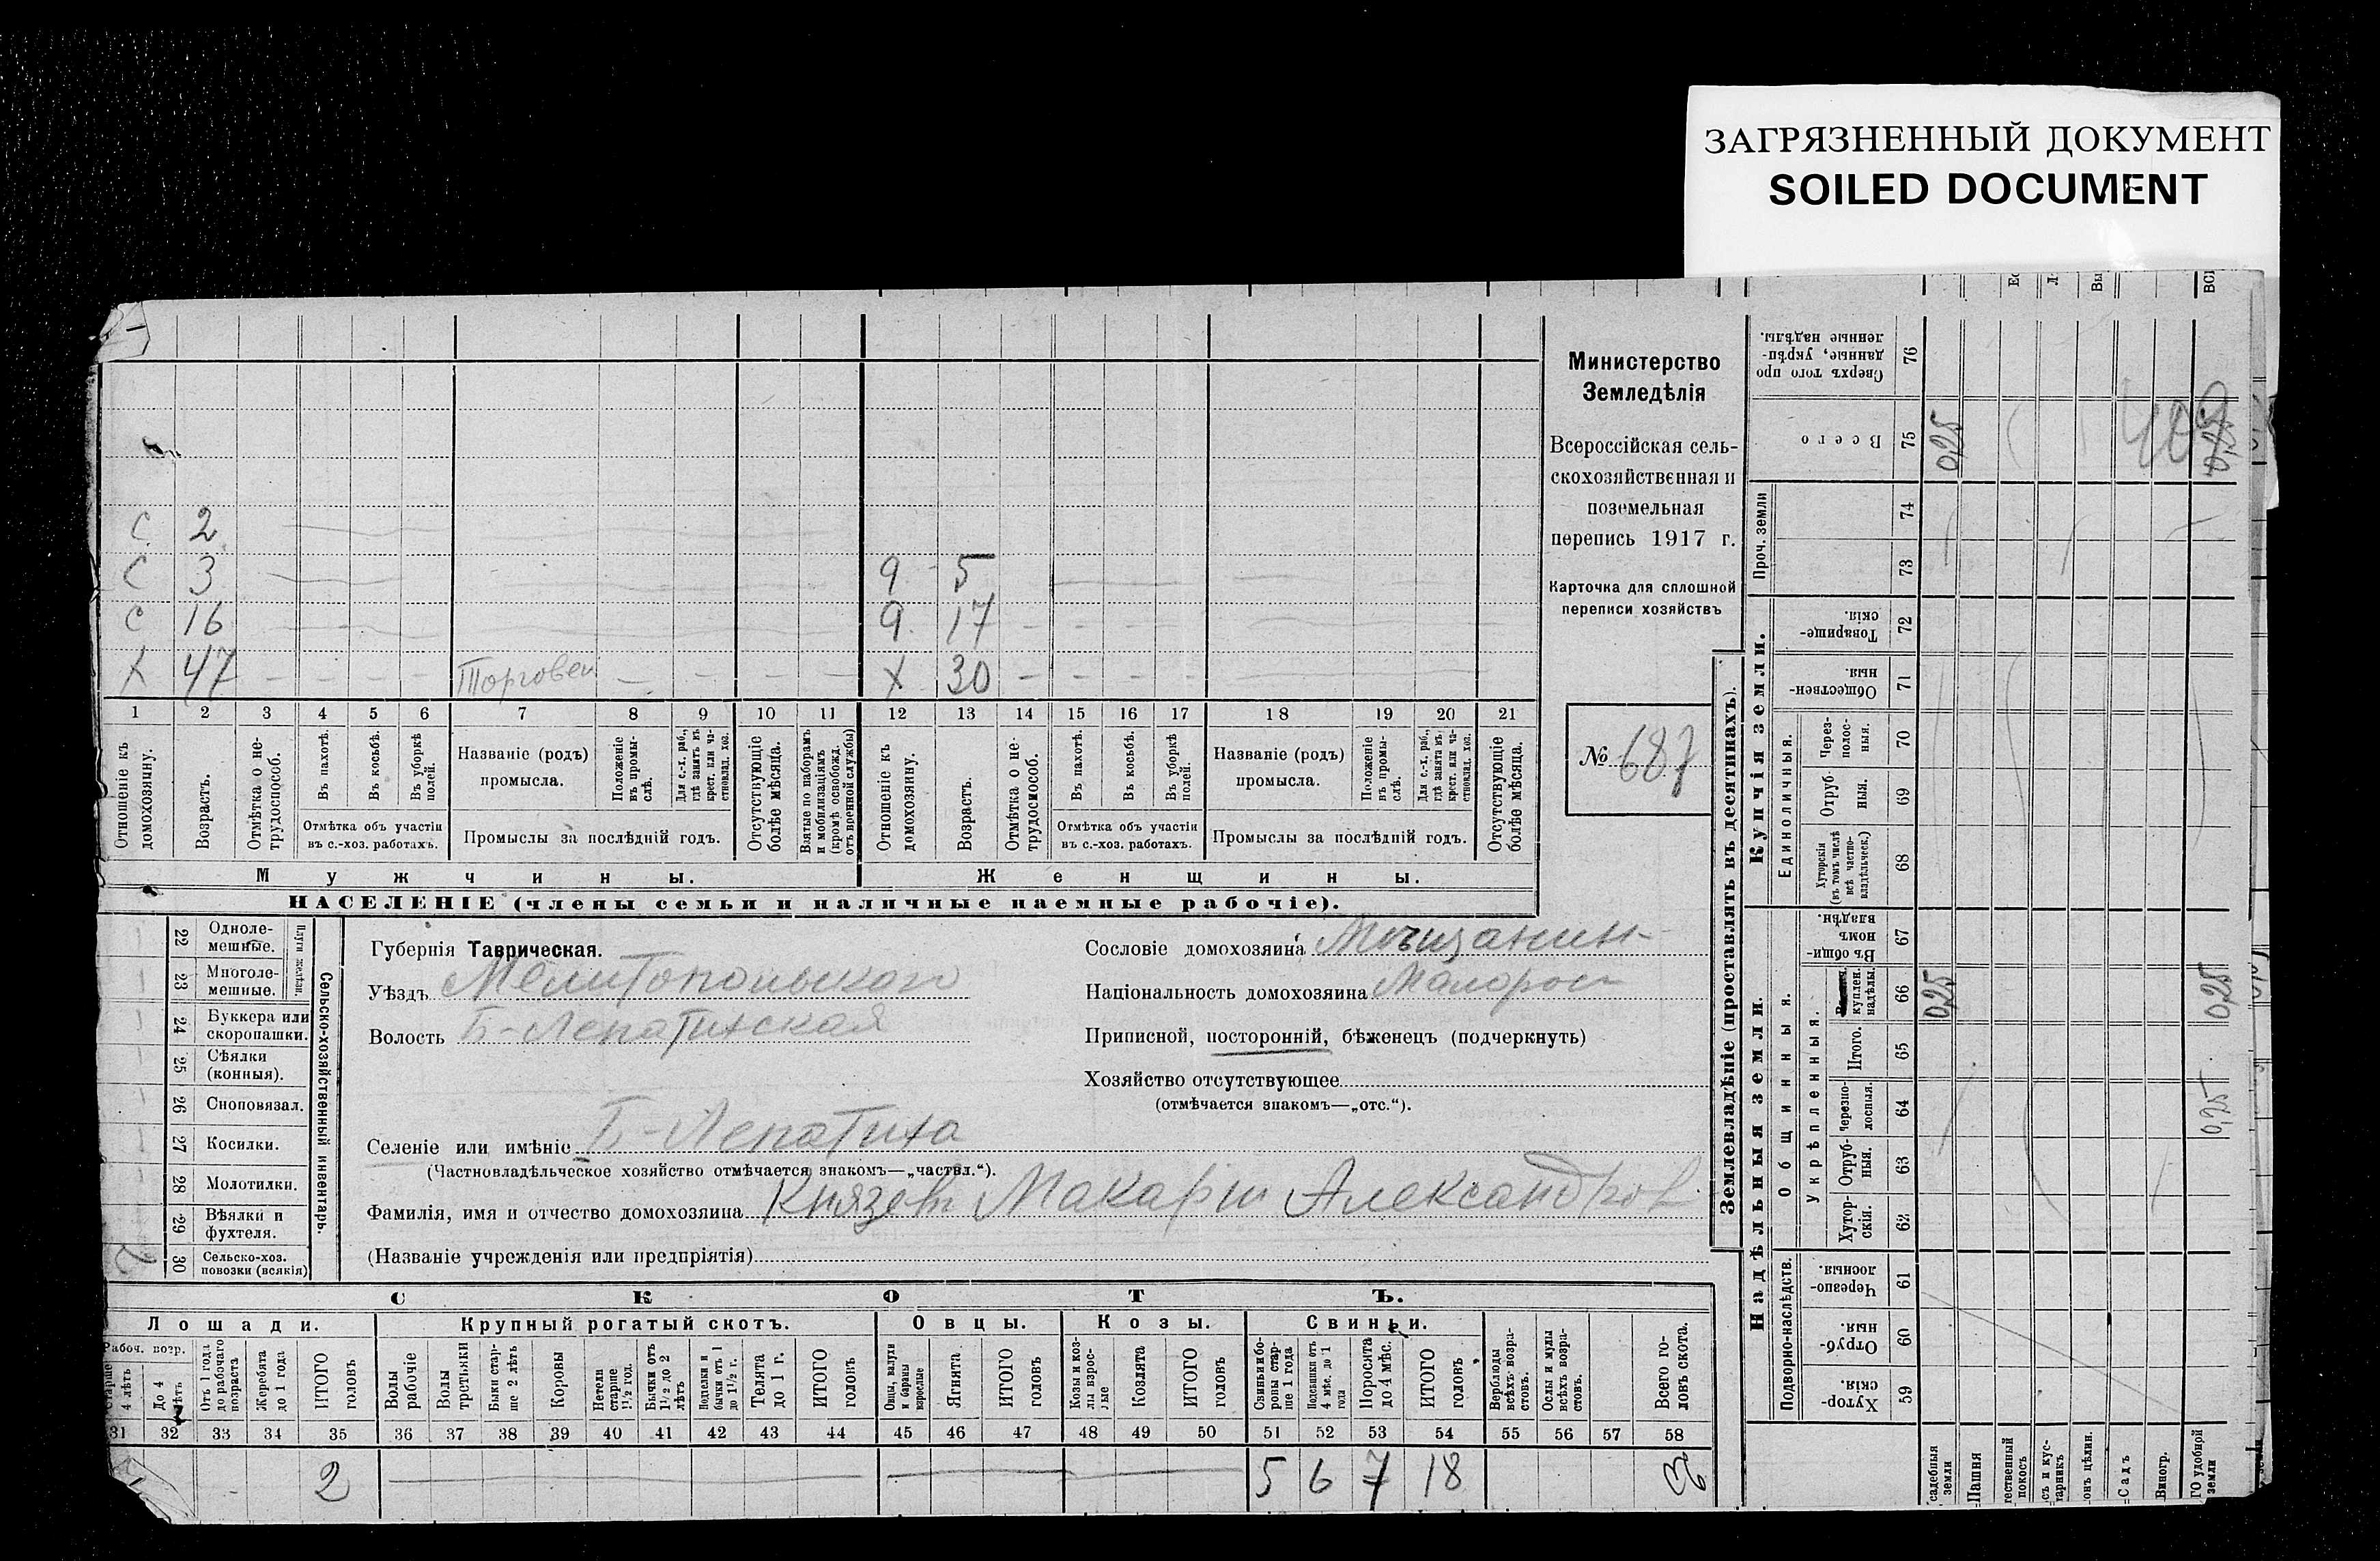 ЗАГРЯЗНЕННЫЙ ДОКУМЕНТ
SOILED DOCUMENT
Министерство
Земледѣлія
Всероссійская сель-
скохозяйственная и
поземельная
перепись 1917 г.
Карточка для сплошной
переписи хозяйствъ
№ 687
С 2
С 3 9 5
С 16 9 17
Х 47 Торговец Х 30
1 2 3 4 5 6 7 8 9 10 11 12 13 14 15 16 17 18 19 20 21
Отношеніе къ домохозяину.
Возрастъ.
Отмѣтка о не-трудоспособ.
Въ пахотѣ.
Въ косьбѣ.
Въ уборкѣ полей.
Отмѣтка объ участіи
въ с.-хоз. работахъ.
Названіе (родъ)
промысла.
Положеніе въ промы-слѣ.
Для с.-х. раб., гдѣ занятъ въ крест. или ча-стновлад. хоз.
Промыслы за послѣдній годъ.
Отсутствующіе болѣе мѣсяца.
Взятые по наборамъ и мобилизаціямъ (кромѣ освобожд. отъ военной службы)
Отношеніе къ домохозяину.
Возрастъ.
Отмѣтка о не-трудоспособ.
Въ пахотѣ.
Въ косьбѣ.
Въ уборкѣ полей.
Отмѣтка объ участіи
въ с.-хоз. работахъ.
Названіе (родъ)
промысла.
Положеніе въ промы-слѣ.
Для с.-х. раб., гдѣ занята въ крест. или ча-стновлад. хоз.
Промыслы за послѣдній годъ.
Отсутствующіе болѣе мѣсяца.
Мужчины. Женщины.
НАСЕЛЕНІЕ (члены семьи и наличные наемные рабочіе).
Сельско-хозяйственный инвентарь.
Плуги желѣзн.
22 Одноле-мешные.
23 Многоле-мешные.
24 Буккера или скоропашки.
25 Сѣялки (конныя).
26 Сноповязал.
27 Косилки.
28 Молотилки.
29 Вѣялки и фухтеля.
30 Сельско-хоз. повозки (всякія) 2
Губернія Таврическая.
Уѣздъ Мелитопольскаго
Волость Б-Лепатихская
Селеніе или имѣніе Б-Лепатиха
(Частновладѣльческое хозяйство отмѣчается знакомъ—„частвл.“).
Фамилія, имя и отчество домохозяина Князевъ Макарій Александров
(Названіе учрежденія или предпріятія)
Сословіе домохозяина Мѣщанин
Національность домохозяина Малорос
Приписной, посторонній, бѣженецъ (подчеркнуть)
Хозяйство отсутствующее
(отмѣчается знакомъ—„отс.“).
СКОТЪ.
Лошади. Крупный рогатый скотъ. Овцы. Козы. Свиньи.
Рабоч. возр.
Старше 4 лѣтъ
До 4 лѣтъ
Отъ 1 года до рабочаго возраста
Жеребята до 1 года
ИТОГО головъ
Волы рабочіе
Волы третьяки
Быки стар-ше 2 лѣтъ
Коровы
Нетели старше 1½ год.
Бычки отъ 1½ до 2 лѣтъ
Подтелки и бычки отъ 1 до 1½ г.
Телята до 1 г.
ИТОГО головъ
Овцы, валухи и бараны взрослые
Ягнята
ИТОГО головъ
Козы и коз-лы взрос-лые
Козлята
ИТОГО головъ
Свиньи и бо-ровы стар-ше 1 года
Подсвинки отъ 4 мѣс. до 1 года
Поросята до 4 мѣс.
ИТОГО головъ
Верблюды всѣхъ возра-стовъ.
Ослы и мулы всѣхъ возра-стовъ.
Всего го-ловъ скота.
31 32 33 34 35 36 37 38 39 40 41 42 43 44 45 46 47 48 49 50 51 52 53 54 55 56 57 58
2 5 6 7 18
Землевладѣніе (проставлять въ десятинахъ).
Купчія земли.
Надѣльныя земли.
Сверхъ того про данные, укрѣп-ленные надѣлы. 76
Всего 75 0,25 0,25
Проч. земли 74 73
Товарище-скія. 72
Обществен-ныя. 71
Единоличныя.
Через-полос-ныя. 70
Отруб-ныя. 69
Хуторскія (въ томъ числѣ всѣ частно-владѣльческ.) 68
Общинныя.
Въ общи-номъ владѣн. 67
куплен. надѣлы. 66 0,25 0,25
Укрѣпленныя.
Итого. 65
Черезпо-лосныя. 64 0,25
Отруб-ныя. 63
Хутор-скія. 62
Подворно-наслѣдств.
Черезпо-лосныя. 61
Отруб-ныя. 60
Хутор-скія. 59
садебныя земли
Пашня
тественный покосъ
съ и кус-тарникъ
онъ цѣлин.
Садъ
Виногр.
ГО удобной земли